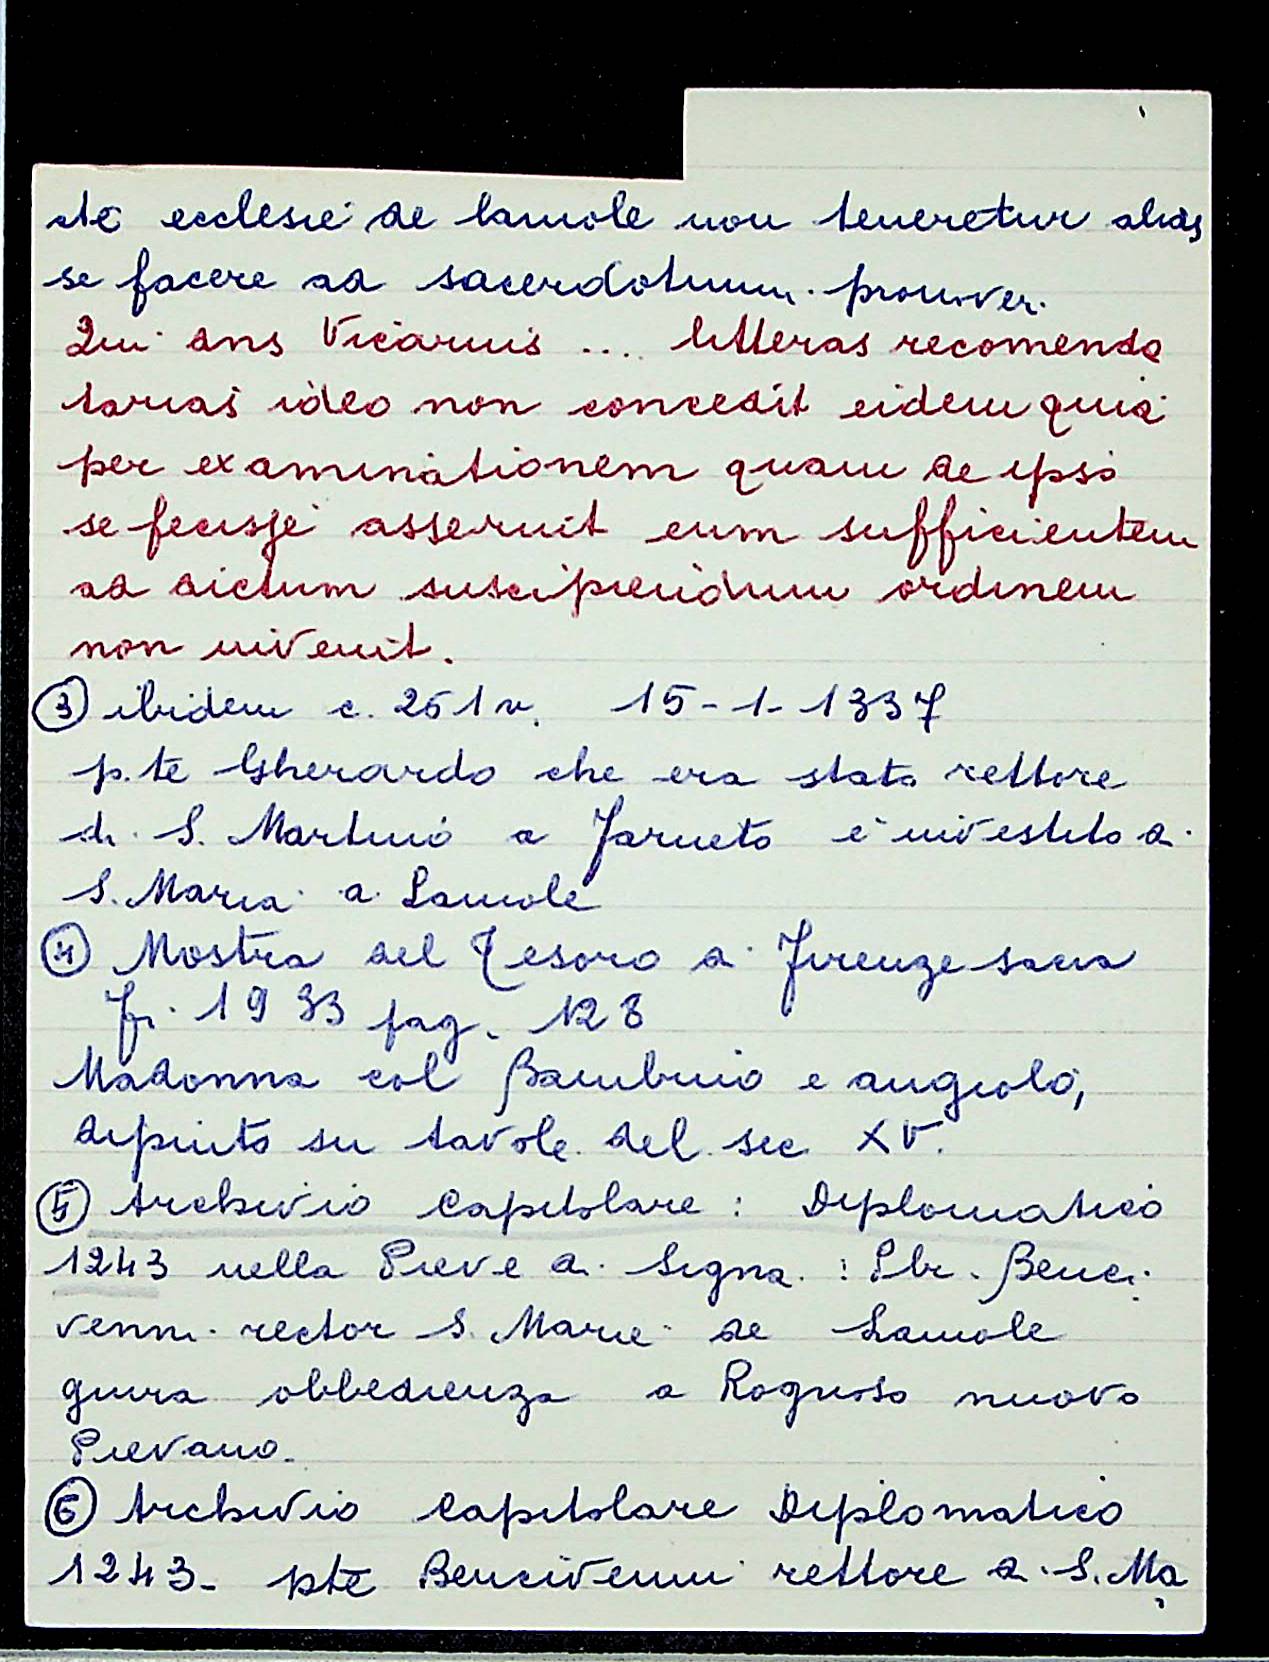 cte ecclesie de Lamole non teneretur alias
se facere ad sacerdotium promover.
Qui dns Vicarius .... litteras recomenda
tarias ideo non concedit eidem quia
per examinationem quam de ipso
se fecisse asseruit eum sufficientem
ad dictum suscipiendum ordinem
non invenit.
③ ibidem c. 251 v. 15-1-1337
p.te Gherardo che era stato rettore
di S. Martino a Farneto e' investito a
S. Maria a Lamole
④ Mostra del Tesoro di Firenze sacra
Fi. 1933 pag. 128
Madonna col Bambino e angiolo,
dipinto su tavole del sec. XV.
⑤ Archivio Capitolare: Diplomatico
1243 nella Pieve a Signa: Pbr. Benci
venni rector S. Marie de Lamole
giura obbedienza a Rognoso nuovo
Pievano.
⑥ Archivio Capitolare Diplomatico
1243- pte Bencivenni rettore a S. Ma